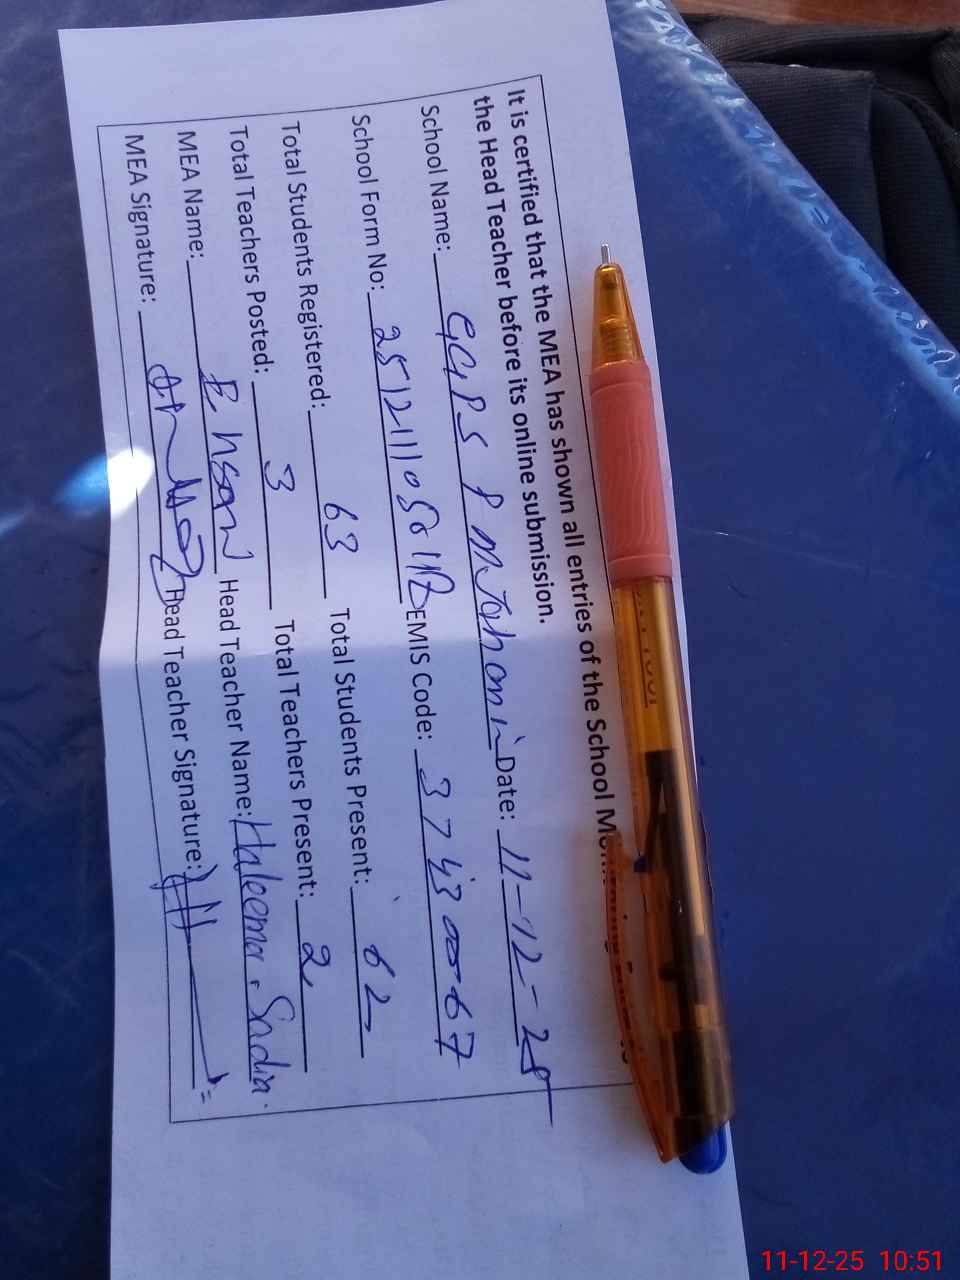 It is certified that the MEA has shown all entries of the School
the Head Teacher before its online submission.
School Name: GGPS Date: 11-12-25
School Form No: EMIS Code: 37430067
Total Students Registered: 63 Total Students Present: 62
Total Teachers Posted: 3 Total Teachers Present: 2
MEA Name: Head Teacher Name: Haleema Sadia.
MEA Signature: Head Teacher Signature:
11-12-25 10:51